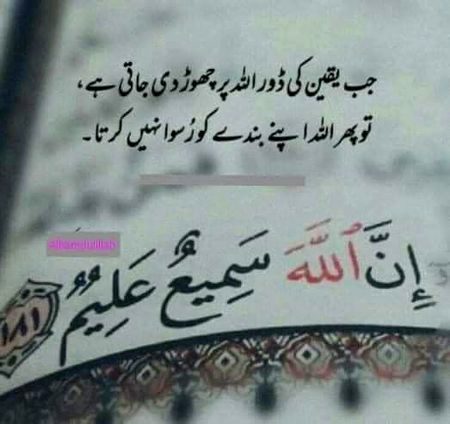 جب یقین کی ڈور اللہ پر چھوڑ دی جاتی ہے،
تو پھر اللہ اپنے بندے کو رُسوا نہیں کرتا۔
Alhamdulillah
إِنَّ ٱللَّهَ سَمِيعٌ عَلِيمٌ ١٨١